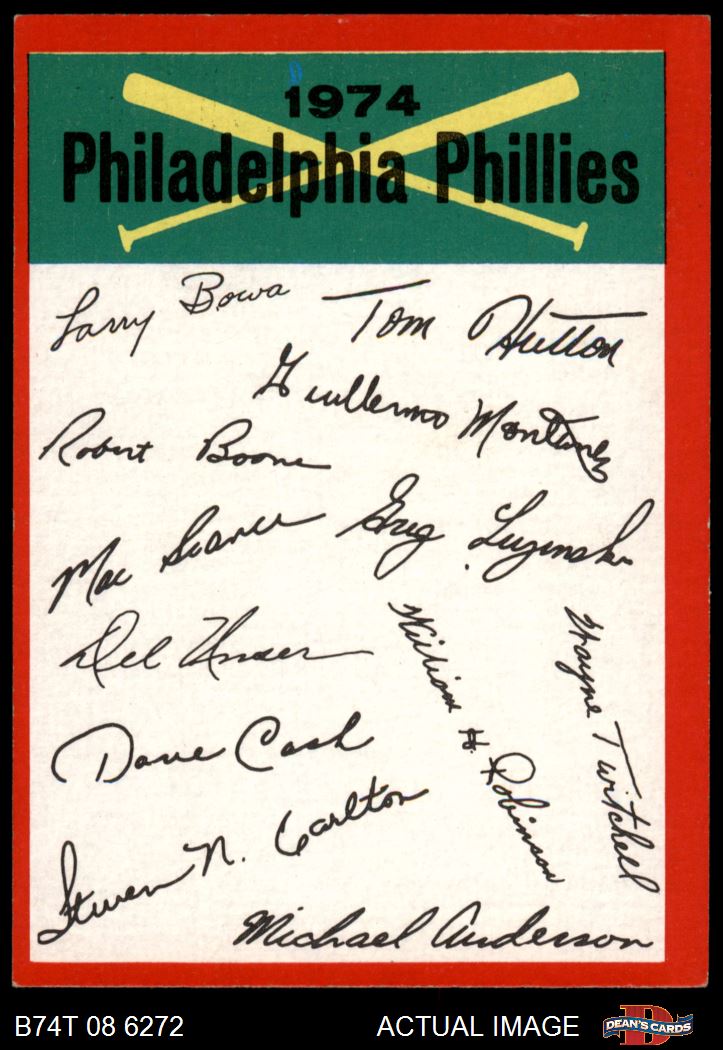 1974
Philadelphia Phillies
Larry Bowa
Tom Hutton
Guillermo Montanez
Robert Boone
Mac Scarce
Greg Luzinski
Del Unser
William H. Robinson
Wayne Twitchell
Dave Cash
Steven N. Carlton
Michael Anderson
B74T 08 6272
ACTUAL IMAGE
DEAN'S CARDS